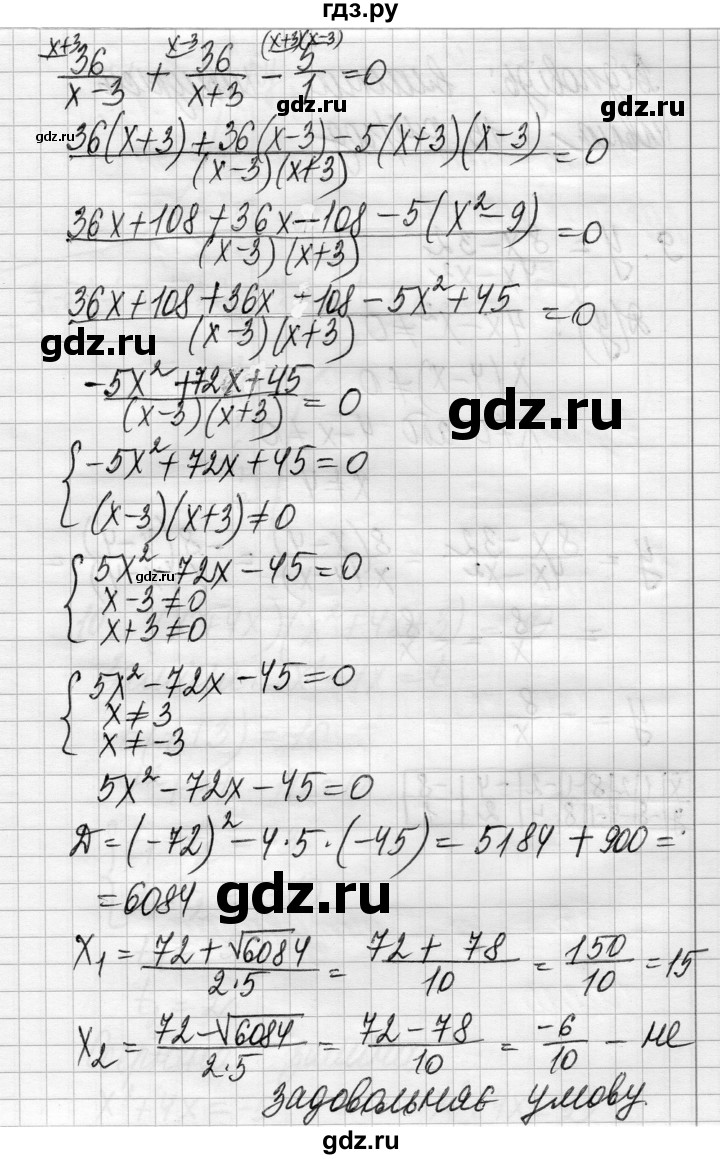 гдз.ру
x+3 x-3 (x+3)(x-3)
36/(x-3) + 36/(x+3) - 5/1 = 0
gdz.ru gdz.ru
(36(x+3)+36(x-3)-5(x+3)(x-3))/((x-3)(x+3)) = 0
(36x+108+36x-108-5(x²-9))/((x-3)(x+3)) = 0
(36x+108+36x-108-5x²+45)/((x-3)(x+3)) = 0
gdz.ru
(-5x²+72x+45)/((x-3)(x+3)) = 0
gdz.ru
{ -5x²+72x+45=0
(x-3)(x+3)≠0
{ 5x²-72x-45=0
gdz.ru gdz.ru
x-3≠0
x+3≠0
{ 5x²-72x-45=0
x≠3
x≠-3
5x²-72x-45=0
Д=(-72)²-4·5·(-45)=5184+900=
=6084
gdz.ru
x₁=(72+√6084)/(2·5)=(72+78)/10=150/10=15
x₂=(72-√6084)/(2·5)=(72-78)/10=-6/10 - не
задовольняє умову
gdz.ru